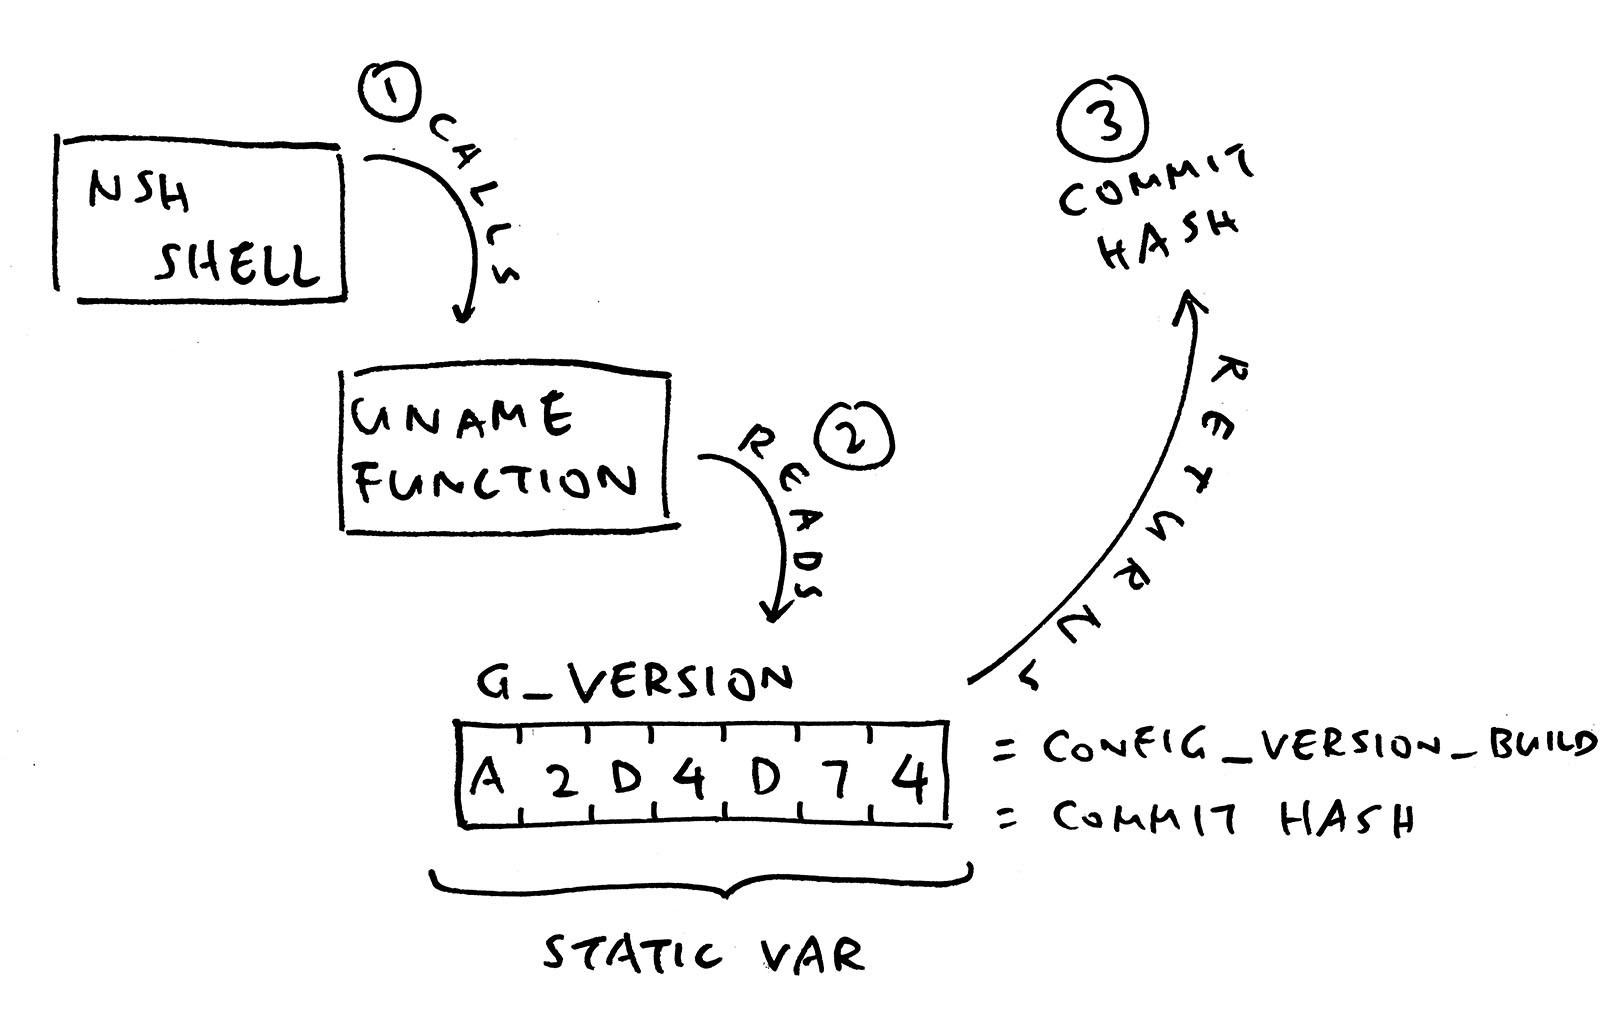 1 CALLS
NSH
SHELL
UNAME
FUNCTION
READS 2
G_VERSION
A 2 D 4 D 7 4
= CONFIG_VERSION_BUILD
= COMMIT HASH
STATIC VAR
RETURNS
3
COMMIT
HASH